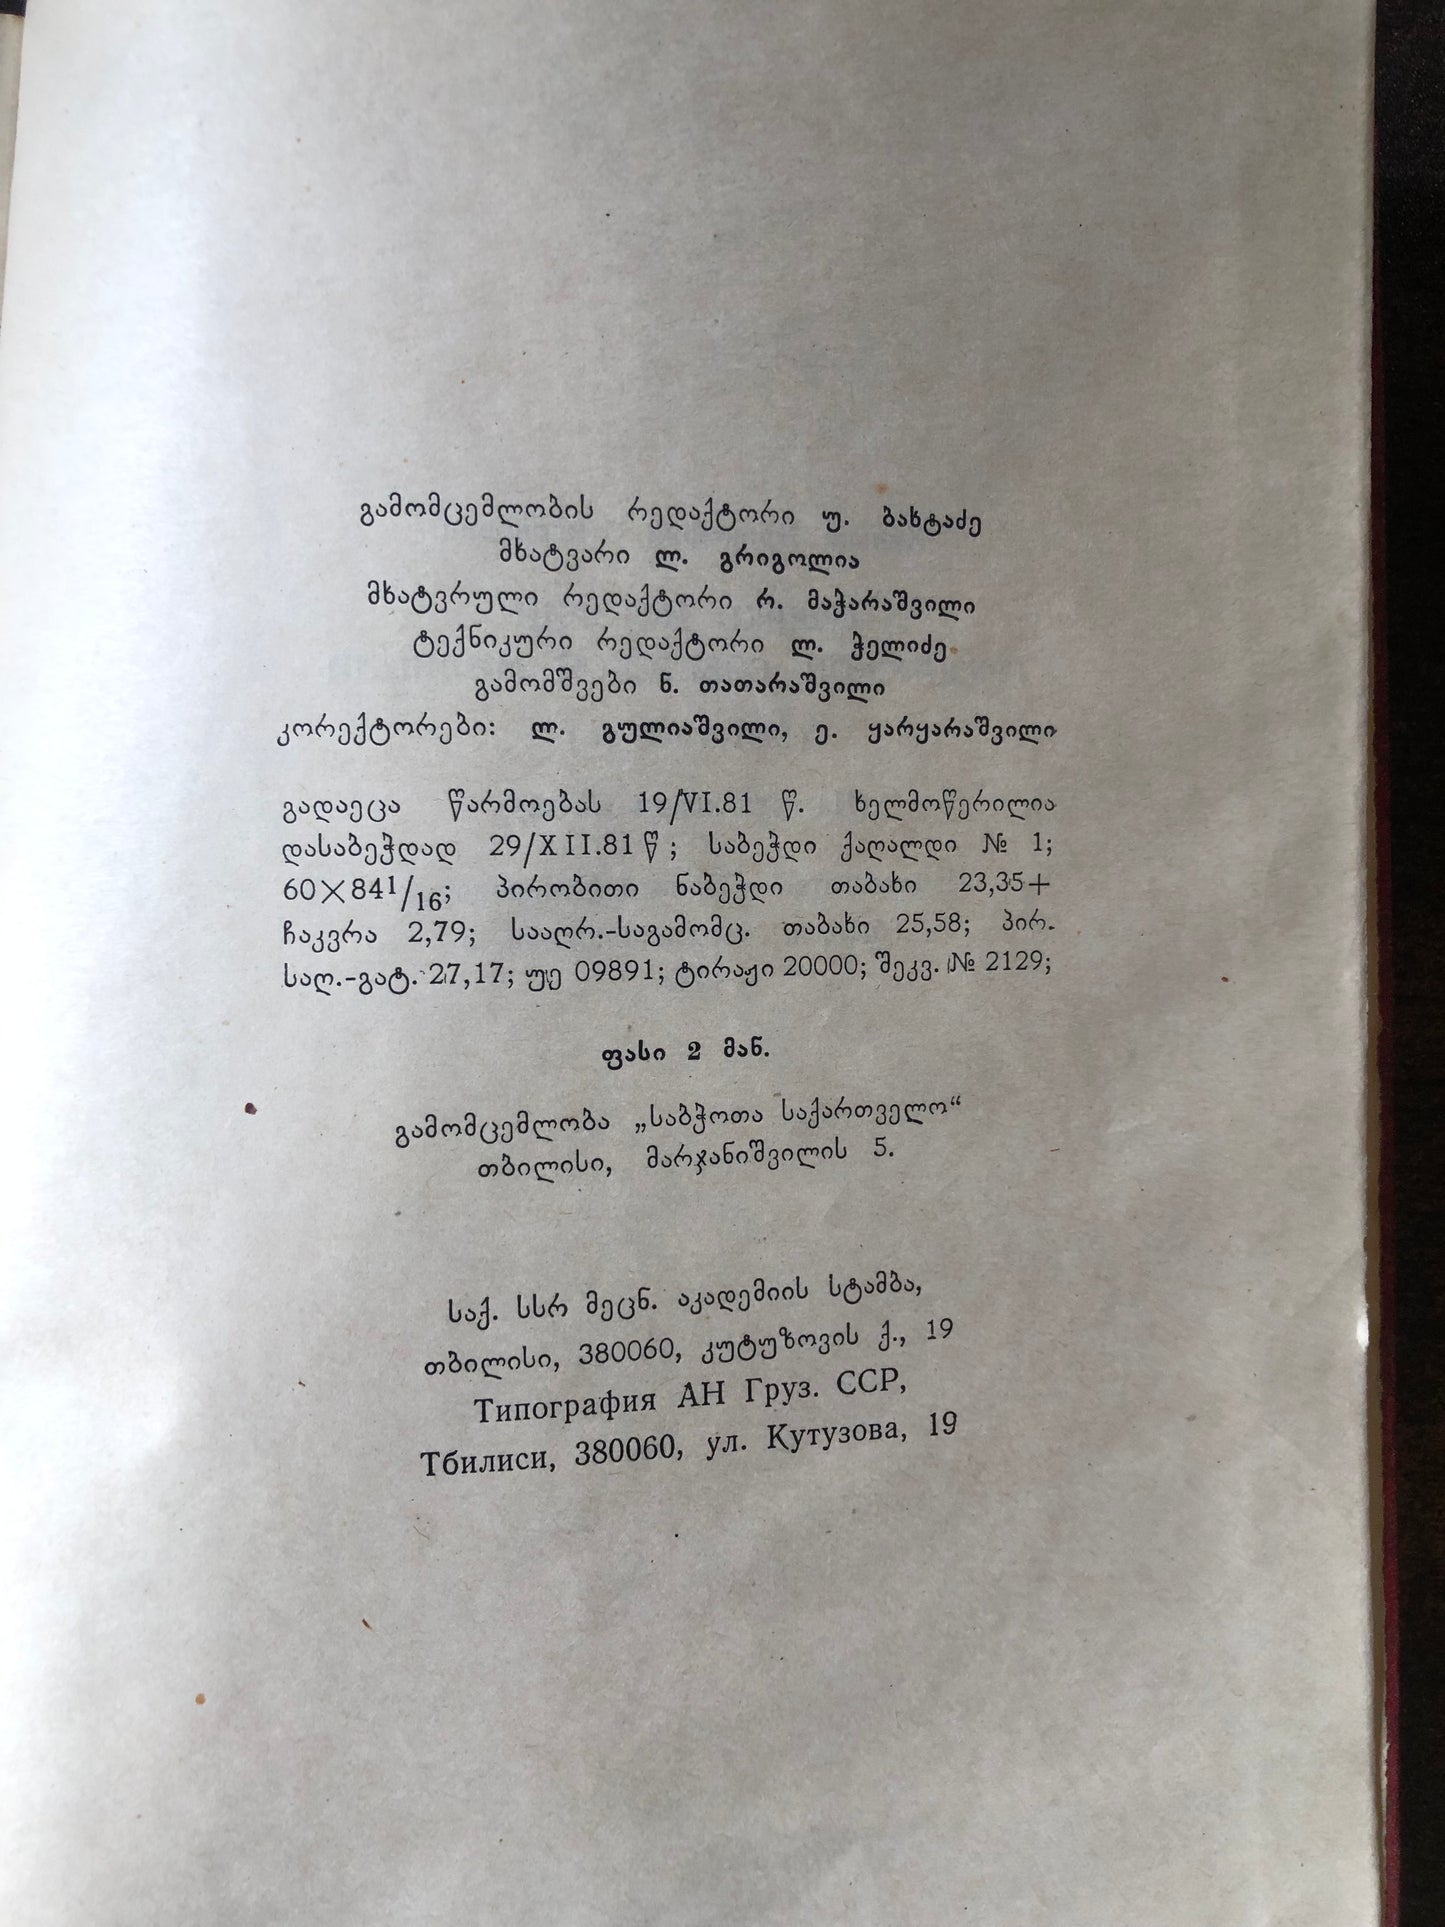 გამომცემლობის რედაქტორი უ. ბახტაძე
მხატვარი ლ. გრიგოლია
მხატვრული რედაქტორი რ. მაჭარაშვილი
ტექნიკური რედაქტორი ლ. ჭელიძე
გამომშვები ნ. თათარაშვილი
კორექტორები: ლ. გულიაშვილი, ე. ყარყარაშვილი
გადაეცა წარმოებას 19/VI.81 წ. ხელმოწერილია
დასაბეჭდად 29/XII.81 წ; საბეჭდი ქაღალდი № 1;
60×84¹/₁₆; პირობითი ნაბეჭდი თაბახი 23,35+
ჩაკვრა 2,79; სააღრ.-საგამომც. თაბახი 25,58; პირ.
საღ.-გატ. 27,17; უე 09891; ტირაჟი 20000; შეკვ. № 2129;
ფასი 2 მან.
გამომცემლობა „საბჭოთა საქართველო“
თბილისი, მარჯანიშვილის 5.
საქ. სსრ მეცნ. აკადემიის სტამბა,
თბილისი, 380060, კუტუზოვის ქ., 19
Типография АН Груз. ССР,
Тбилиси, 380060, ул. Кутузова, 19